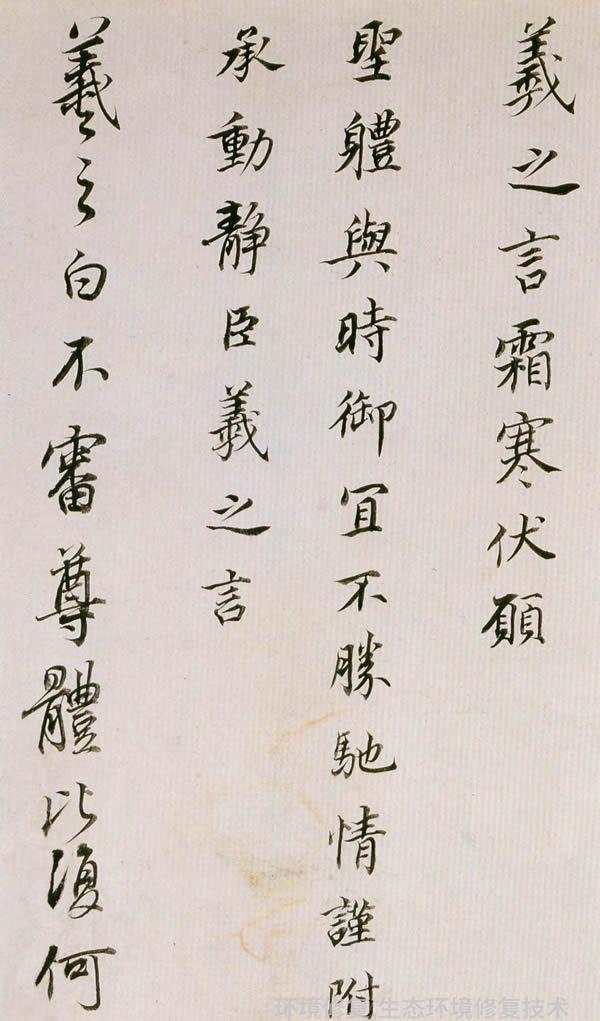 羲之言霜寒伏願
聖體與時御宜不勝馳情謹附
承動靜臣羲之言
羲之白不審尊體比復何
环境修复 生态环境修复技术